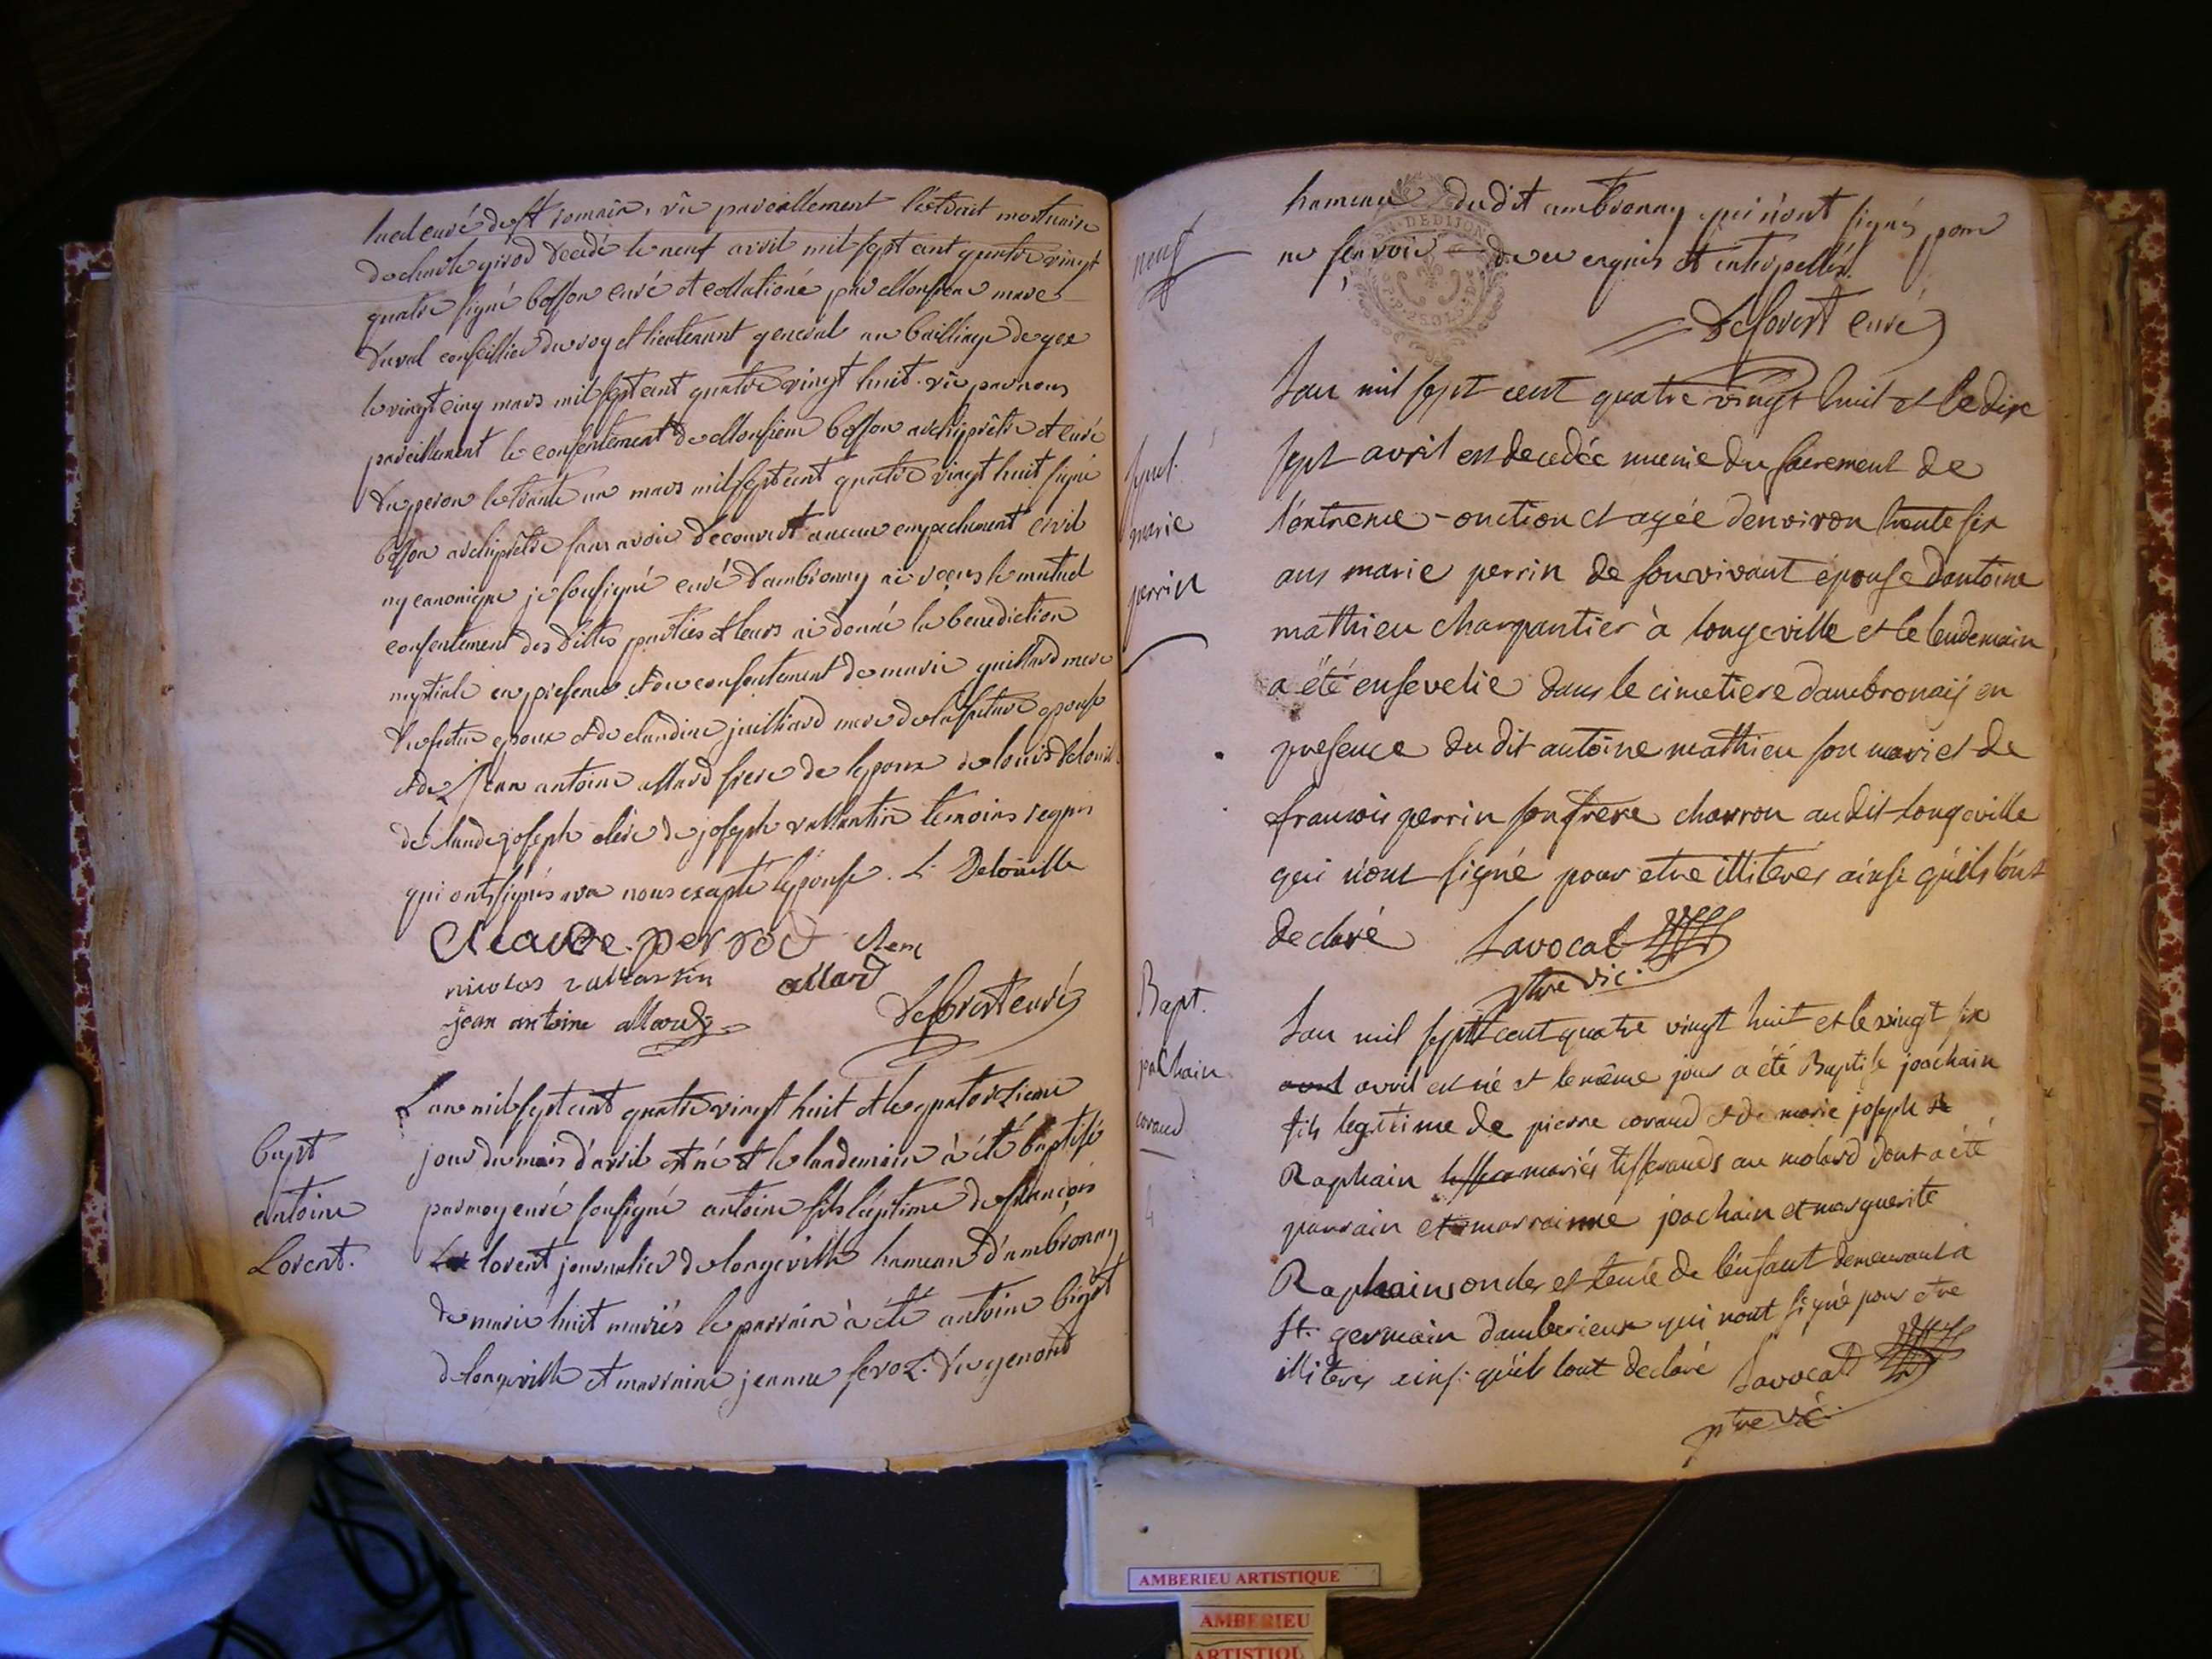 curé de st romain, vû pareillement l'extrait mortuaire
de charle girod decedé le neuf avril mil sept cent quatre vingt
quatre signé bosson curé et collationé par Monsieur
Duval conseillier du roy et lieutenant general au bailliage de gex
le vingt cinq mars mil sept cent quatre vingt huit. vû par nous
pareillement le consentement de Monsieur bosson archiprêtre et curé
le trante un mars mil sept cent quatre vingt huit signé
bosson archiprêtre sans avoir decouvert aucun empechement civil
ny canonique je soussigné curé d'ambronay ai reçus le mutuel
consentement des dittes parties et leurs ai donné la benediction
nuptiale en presence et du consentement de marie guillard mere
du futur epoux et de claudine juilliard mere de la future epouse
et de Jean antoine allard frere de lepoux de louis
de claude joseph clerc de joseph vallantin temoins requis
qui ont signés avec nous exepté l'epouse. L. Delouille
Claude perrod clerc
nicolas vallantin allard
jean antoine allard Desfort curé
L'an mil sept cent quatre vingt huit et le quatorzieme
jour du mois d'avril est né et le landemain à été baptisé
Bapt
par moy curé soussigné antoine fils légitime de françois
antoine
lorent journalier de longeville hameau d'ambronay
Lorent.
de marie huit mariés le parrain à été antoine
de longeville et marraine jeanne
hameau dudit ambronay qui n'ont signés pour
neuf
ne sçavoir de ce enquis et interpellés.
GEN. DE DIJON
Desfort curé
Lan mil sept cent quatre vingt huit et le dix
sept avril est decedée munie du sacrement de
sepul.
l'extreme-onction et agée denviron trente six
marie
ans marie perrin de son vivant épouse dantoine
perrin
mathieu charpantier à longeville et le lendemain
a été ensevelie dans le cimetiere dambronaÿ en
presence du dit antoine mathieu son mari et de
francois perrin son frere charron audit longeville
qui n'ont signé pour etre illiterés ainsi qu'ils l'ont
declaré Lavocat
ptre vic.
Bapt.
Lan mil sept cent quatre vingt huit et le vingt six
joachain
avril est né et le même jour a été Baptisé joachain
coraud
fils legitime de pierre coraud et de marie joseph
Raphain mariés tisserands au molard dont a été
4
parrain et marrainne joachain et marguerite
Raphains oncle et tente de l'enfant demeurant a
st. germain damberieux qui n'ont signé pour etre
illiterés ainsi qu'ils l'ont declaré Lavocat
ptre vic.
AMBERIEU ARTISTIQUE
AMBERIEU
ARTISTIQU